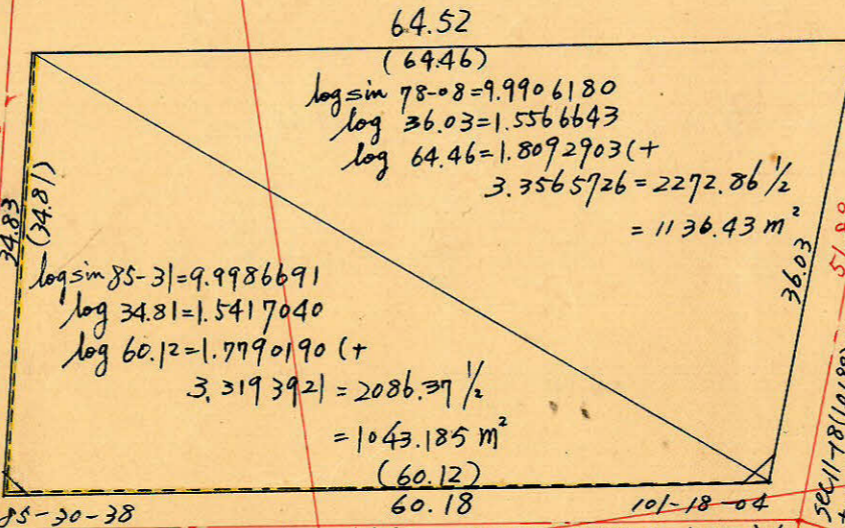 64.52
(64.46)
log sin 78-08=9.9906180
log 36.03=1.5566643
log 64.46=1.8092903(+
3.3565726=2272.86 1/2
=1136.43 m²
34.83
(34.81)
log sin 85-31=9.9986691
log 34.81=1.5417040
log 60.12=1.7790190(+
3.3193921=2086.37 1/2
=1043.185 m²
36.03
(60.12)
60.18
85-30-38
101-18-04